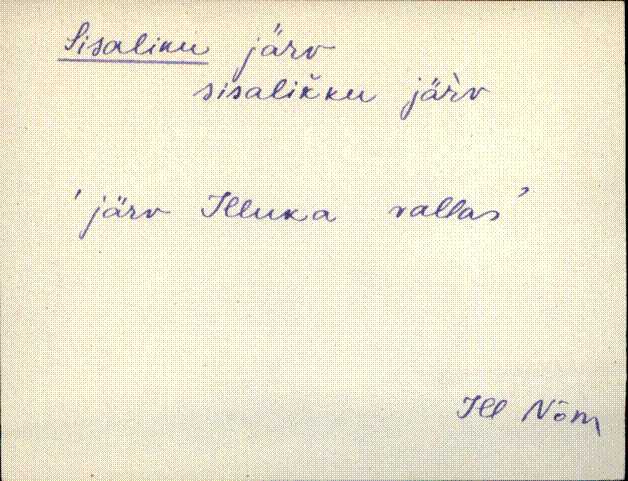 Sisaliku järv
sisalikku järv
'järv Illuka vallas'
Ill Nõm